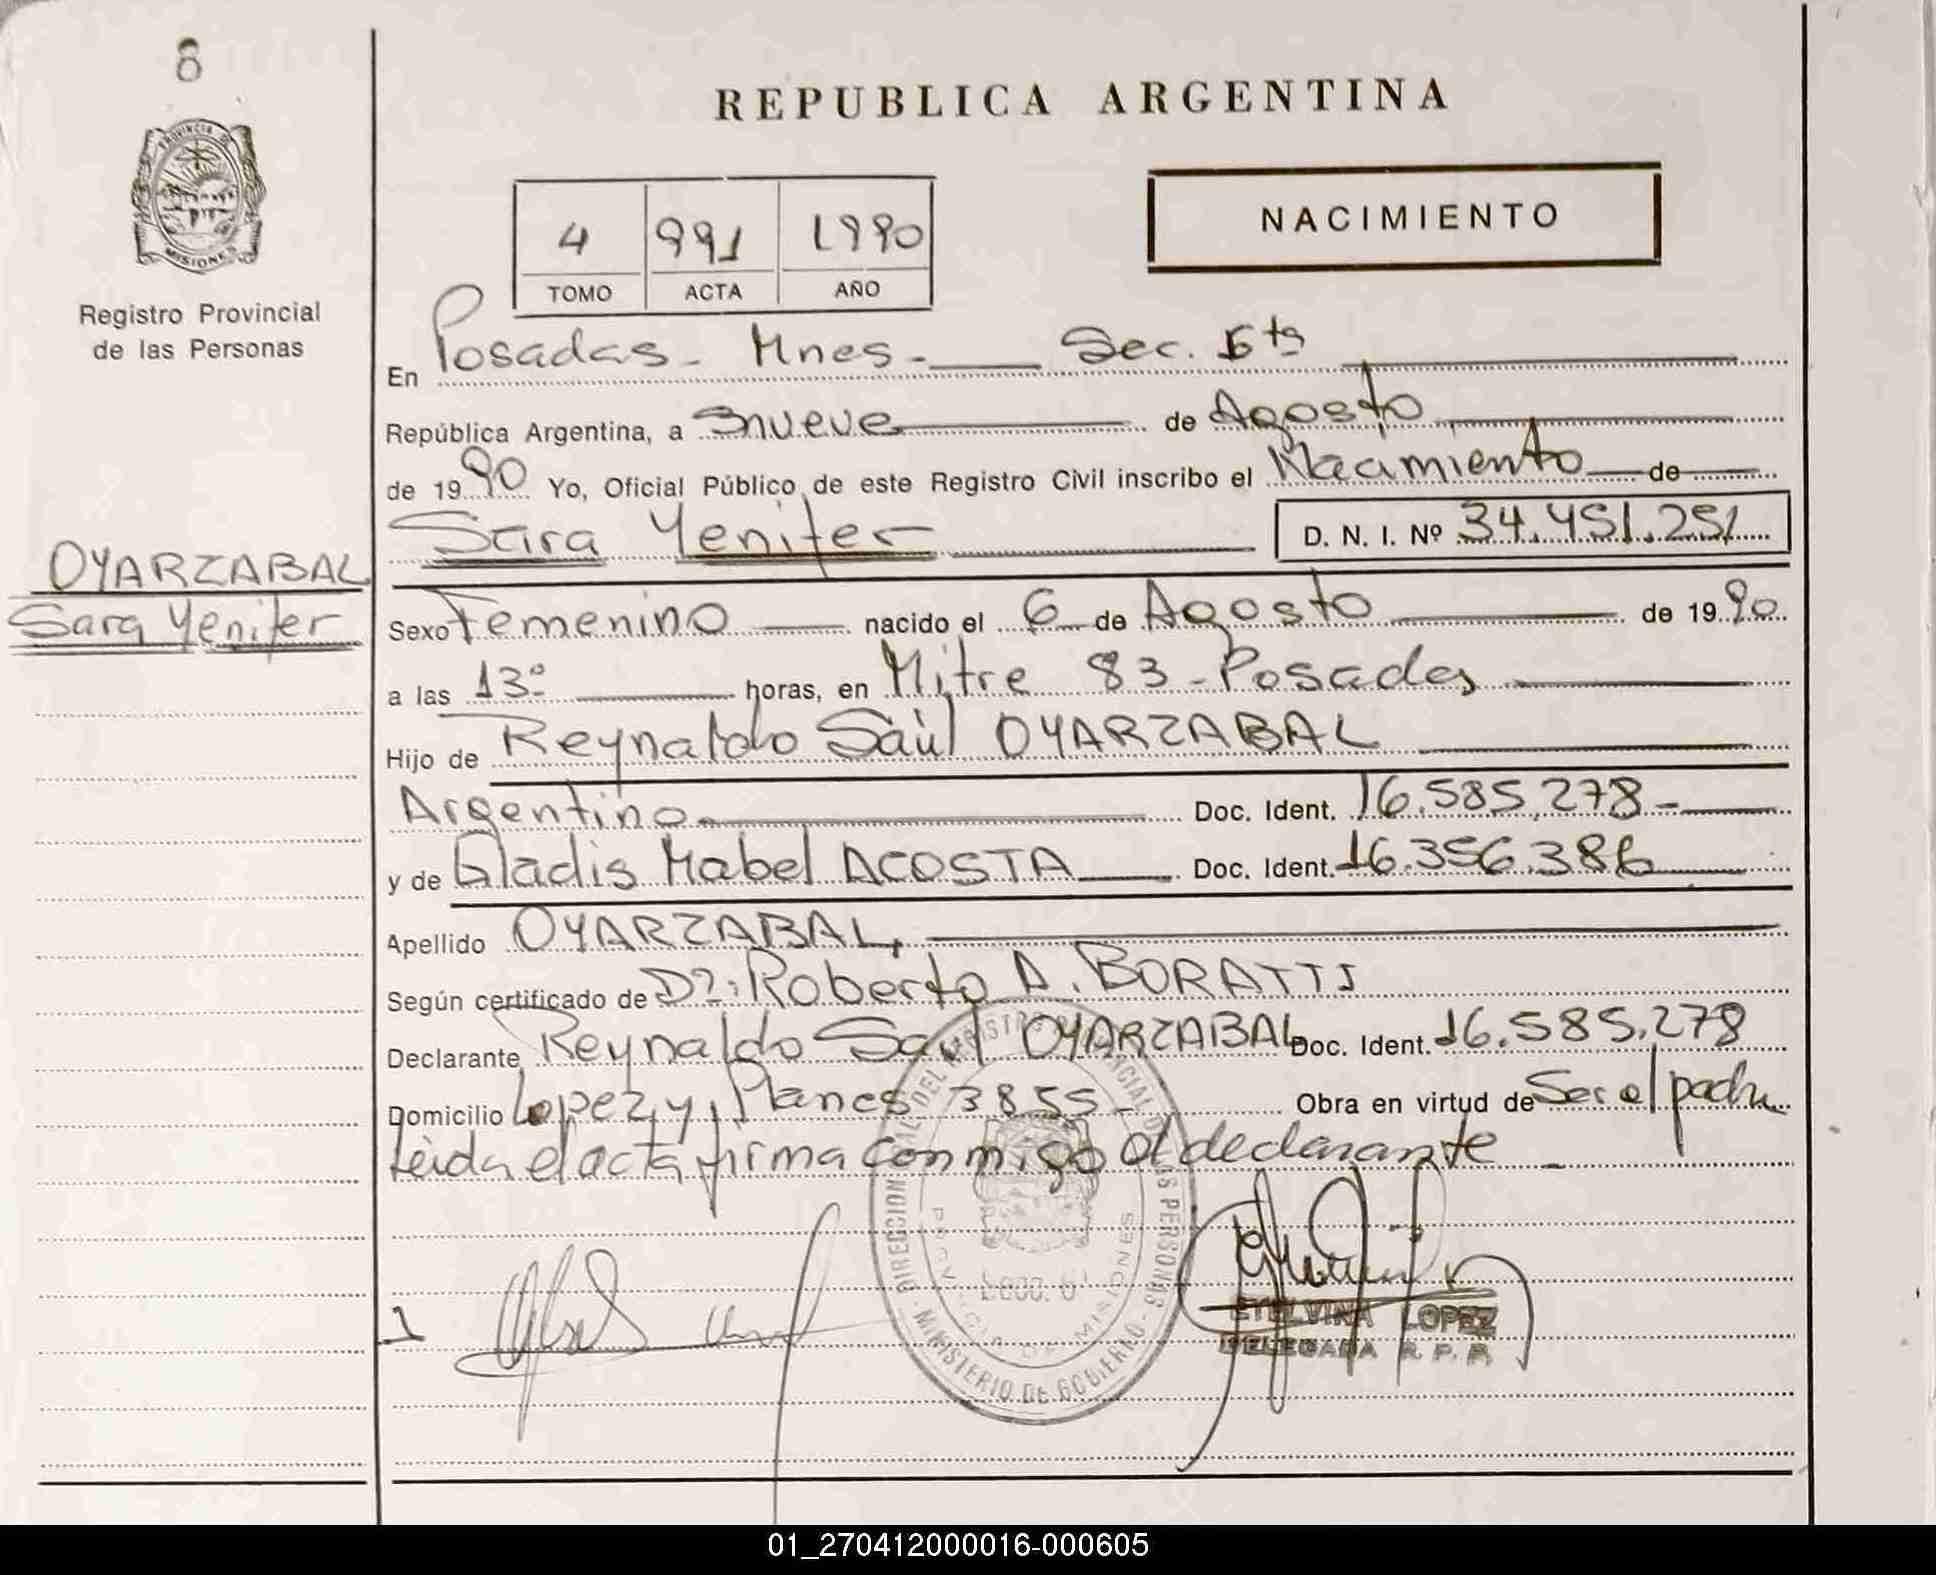 8
REPUBLICA ARGENTINA
PROVINCIA DE
MISIONES
Registro Provincial
de las Personas
4 991 1990
TOMO ACTA AÑO
NACIMIENTO
En Posadas - Mnes - Sec. 5ta
República Argentina, a nueve de Agosto
de 1990 Yo, Oficial Público de este Registro Civil inscribo el Nacimiento de
Sara Yenifer D. N. I. Nº 34.451.251
OYARZABAL
Sara Yenifer
Sexo Femenino nacido el 6 de Agosto de 1990
a las 13º horas, en Mitre 83 - Posadas
Hijo de Reynaldo Saúl OYARZABAL
Argentino Doc. Ident. 16.585.278 -
y de Gladis Mabel ACOSTA Doc. Ident. 16.356.386
Apellido OYARZABAL
Según certificado de Dr. Roberto A. BORATTI
Declarante Reynaldo Saul OYARZABAL Doc. Ident. 16.585.278
Domicilio Lopez y Planes 3855 - Obra en virtud de Ser el padre
Leida el acta firma conmigo el declarante -
DIRECCION DEL REGISTRO PROVINCIAL DE LAS PERSONAS
PROVINCIA DE MISIONES
MINISTERIO DE GOBIERNO
ETELVINA LOPEZ
DELEGADA R. P. P.
01_270412000016-000605